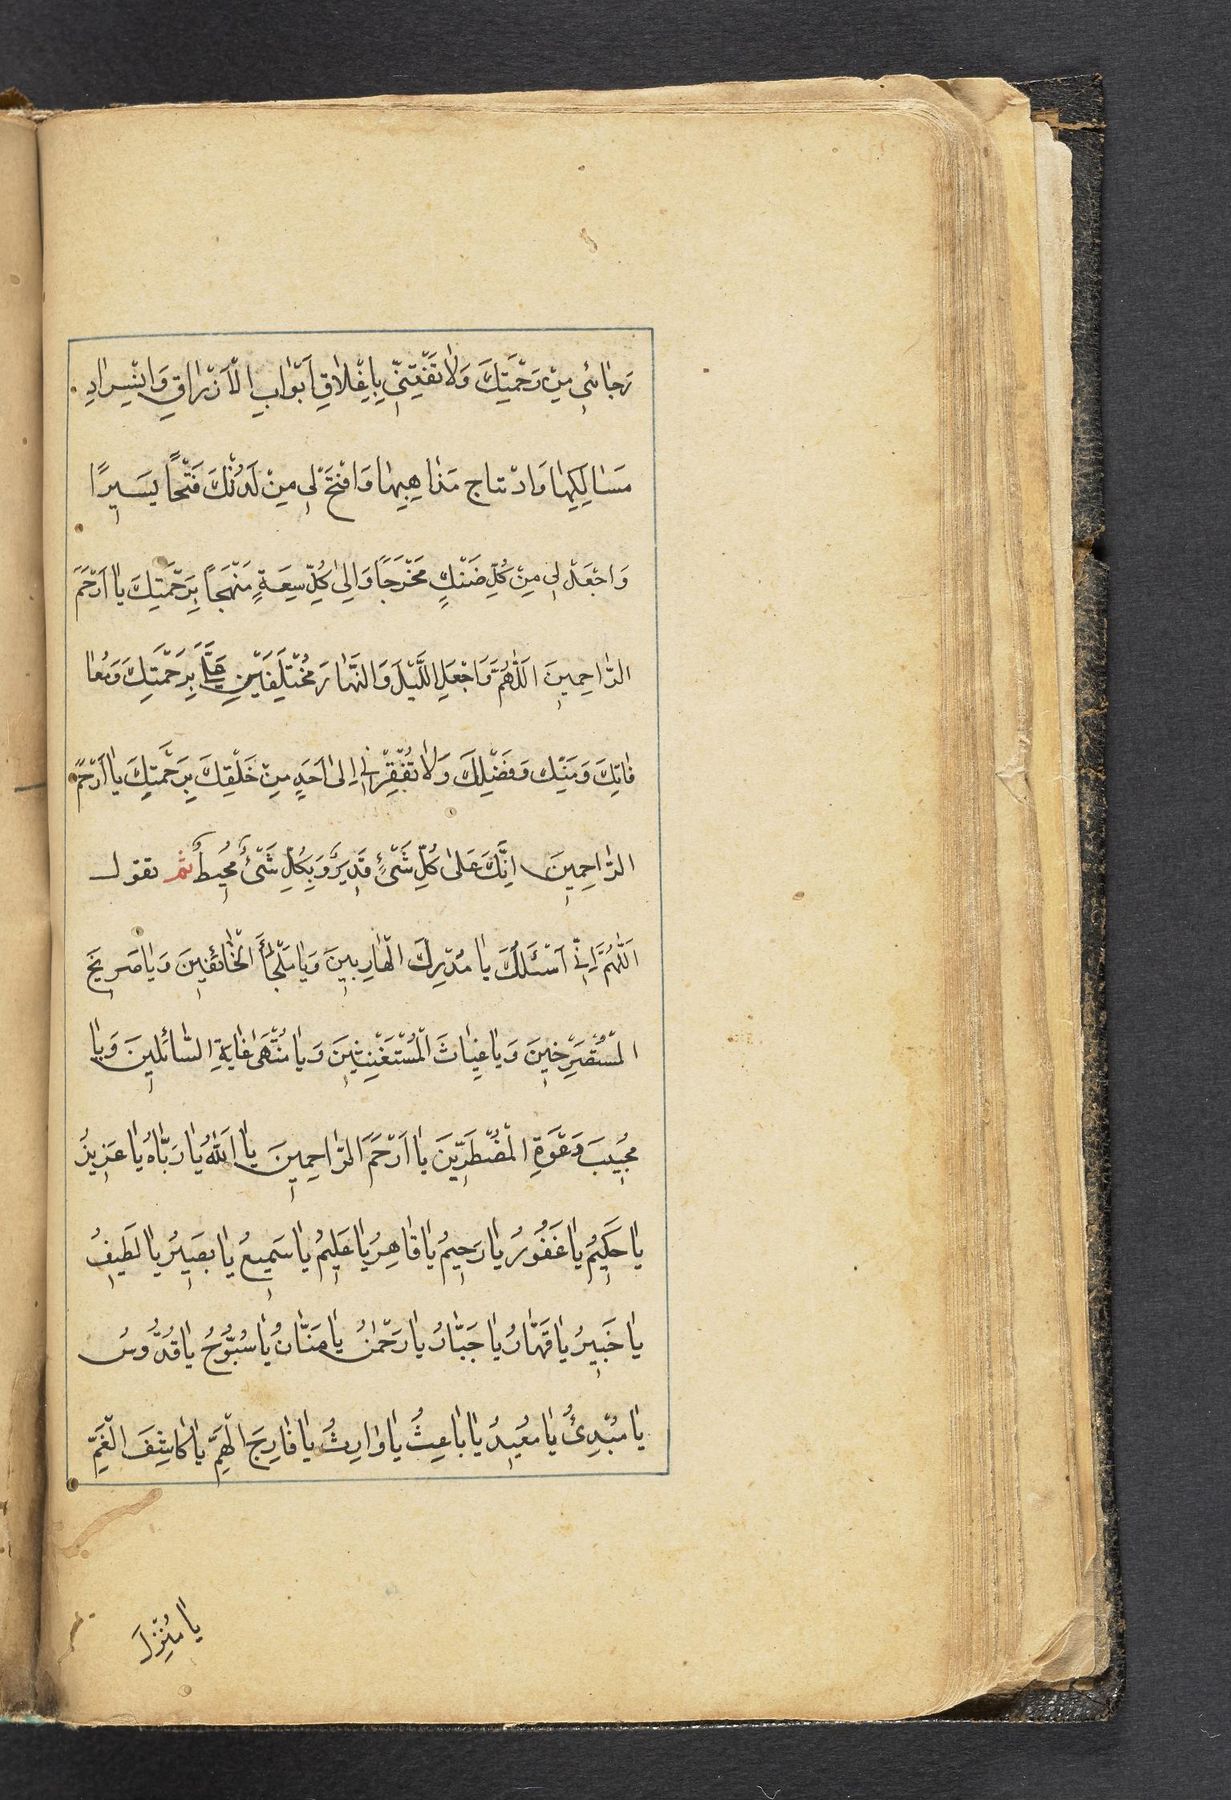 رَجٰائي مِنْ رَحْمَتِكَ وَلاٰ تَفْتِنّي بِاِغْلاٰقِ اَبْوٰابِ الْاَرْزٰاقِ وَانْسِدٰادِ
مَسٰالِكِهٰا وَارْتتاج مَذٰاهِبِهٰا وَافْتَحْ لي مِنْ لَدُنْكَ فَتْحًا يَسيرًا
وَاجْعَلْ لي مِنْ كُلِّ ضَنْكٍ مَخْرَجًا وَاِلىٰ كُلِّ سِعَةٍ مَنْهَجًا بِرَحْمَتِكَ يٰا اَرْحَمَ
الرّٰاحِمينَ اَللّٰهُمَّ وَاجْعَلِ اللَّيْلَ وَالنَّهٰارَ مُخْتَلِفَيْنِ عَلَيَّ بِرَحْمَتِكَ وَمُعٰا
فٰاتِكَ وَمَنِّكَ وَفَضْلِكَ وَلاٰ تُفْقِرْني اِلىٰ اَحَدٍ مِنْ خَلْقِكَ بِرَحْمَتِكَ يٰا اَرْحَمَ
الرّٰاحِمينَ اِنَّكَ عَلىٰ كُلِّ شَيْءٍ قَديرٌ وَبِكُلِّ شَيْءٍ مُحيطٌ ثم تقول
اَللّٰهُمَّ اِنّي اَسْئَلُكَ يٰا مُدْرِكَ الْهٰارِبينَ وَيٰا مَلْجَأَ الْخٰائِفينَ وَيٰا صَريخَ
الْمُسْتَصْرِخينَ وَيٰا غِيٰاثَ الْمُسْتَغيثينَ وَيٰا مُنْتَهىٰ غٰايَةِ السّٰائِلينَ وَيٰا
مُجيبَ دَعْوَةِ الْمُضْطَرّينَ يٰا اَرْحَمَ الرّٰاحِمينَ يٰا اَللّٰهُ يٰا رَبّٰاهُ يٰا عَزيزُ
يٰا حَكيمُ يٰا غَفُورُ يٰا رَحيمُ يٰا قٰاهِرُ يٰا عَليمُ يٰا سَميعُ يٰا بَصيرُ يٰا لَطيفُ
يٰا خَبيرُ يٰا قَهّٰارُ يٰا جَبّٰارُ يٰا رَحْمٰنُ يٰا مَنّٰانُ يٰا سُبُّوحُ يٰا قُدُّوسُ
يٰا مُبْدِئُ يٰا مُعيدُ يٰا بٰاعِثُ يٰا وٰارِثُ يٰا فٰارِجَ الْهَمِّ يٰا كٰاشِفَ الْغَمِّ
يٰا مُنْزِلَ